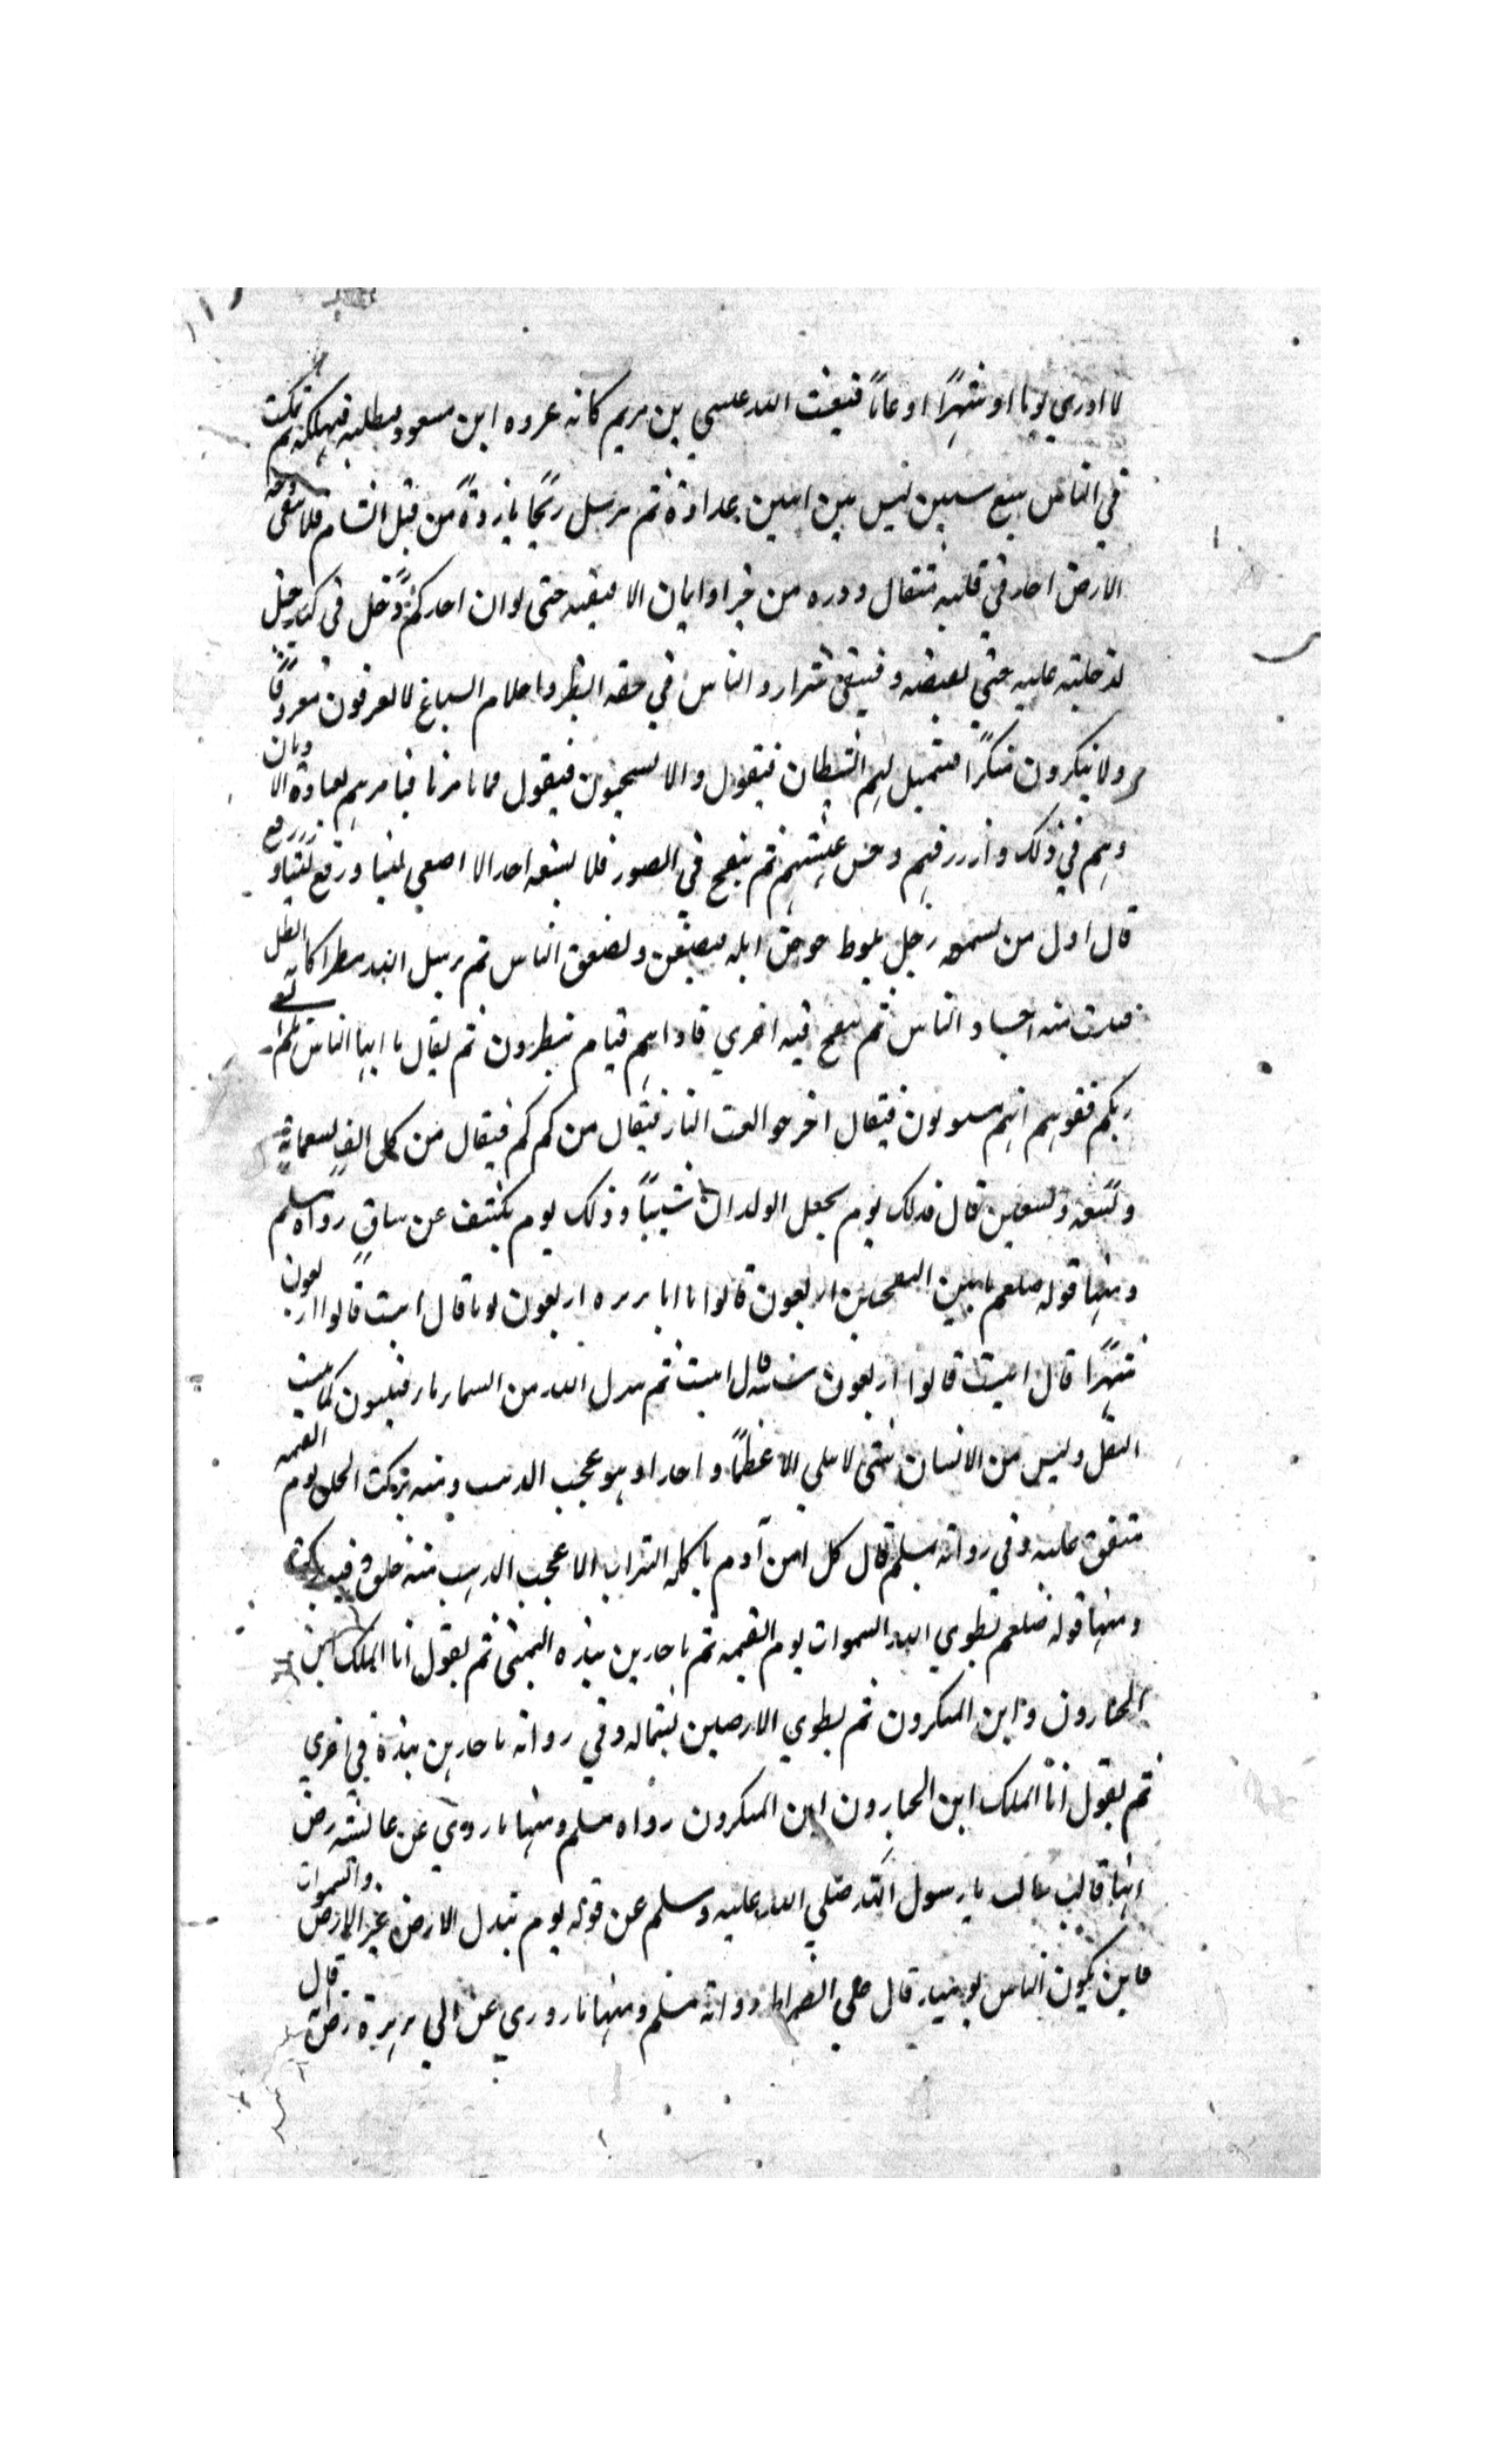 لا ادري يوما او شهرًا او عامًا فيبعث الله عيسى بن مريم كانه عروه ابن مسعود فيطلبه فيهلكه ثم يمكث
في الناس سبع سنين ليس بين اثنين عداوة ثم يرسل ريحًا باردةً من قبل الشام فلا يبقى وجه
الارض احد في قلبه مثقال ذره من خير او ايمان الا قبضته حتى لو ان احدكم دخل في كبد جبل
لدخلته عليه حتى تقبضه فيبقى شرار الناس في خفة الطير واحلام السباع لا يعرفون معروفًا
ولا ينكرون منكرًا فيتمثل لهم الشيطان فيقول الا تستحيون فيقول فما تامرنا فيامرهم بعبادة الاوثان
وهم في ذلك دار رزقهم حسن عيشهم ثم ينفخ في الصور فلا يسمعه احد الا اصغى ليتا ورفع ليتا و
قال اول من يسمعه رجل يلوط حوض ابله فيصعق ويصعق الناس ثم يرسل الله مطرا كانه الطل
فينبت منه اجساد الناس ثم ينفخ فيه اخرى فاذا هم قيام ينظرون ثم يقال يا ايها الناس هلم الى
ربكم قفوهم انهم مسئولون فيقال اخرجوا بعث النار فيقال من كم كم فيقال من كل الف تسعمائة
وتسعة وتسعين قال فذلك يوم يجعل الولدان شيبًا وذلك يوم يكشف عن ساقٍ رواه مسلم
ومنها قوله صلعم ما بين النفختين اربعون قالوا يا ابا هريره اربعون يوما قال ابيت قالوا اربعون
شهرًا قال ابيت قالوا اربعون سنة قال ابيت ثم ينزل الله من السماء ماء فينبتون كما ينبت
البقل وليس من الانسان شئ لا يبلى الا عظمًا واحدا وهو عجب الذنب ومنه يركب الخلق يوم القيمه
متفق عليه وفي رواية مسلم قال كل ابن آدم ياكله التراب الا عجب الذنب منه خلق وفيه يركب
ومنها قوله صلعم يطوي الله السموات يوم القيمه ثم ياخذهن بيده اليمنى ثم يقول انا الملك اين
الجبارون واين المتكبرون ثم يطوي الارضين بشماله وفي رواية ياخذهن بيده في اخرى
ثم يقول انا الملك اين الجبارون اين المتكبرون رواه مسلم ومنها ما روي عن عائشه رض
انها قالت سالت يا رسول الله صلي الله عليه وسلم عن قوله يوم تبدل الارض غير الارض والسموات
فاين يكون الناس يومئذ قال علي الصراط رواه مسلم ومنها ما روي عن ابي هريرة رض قال